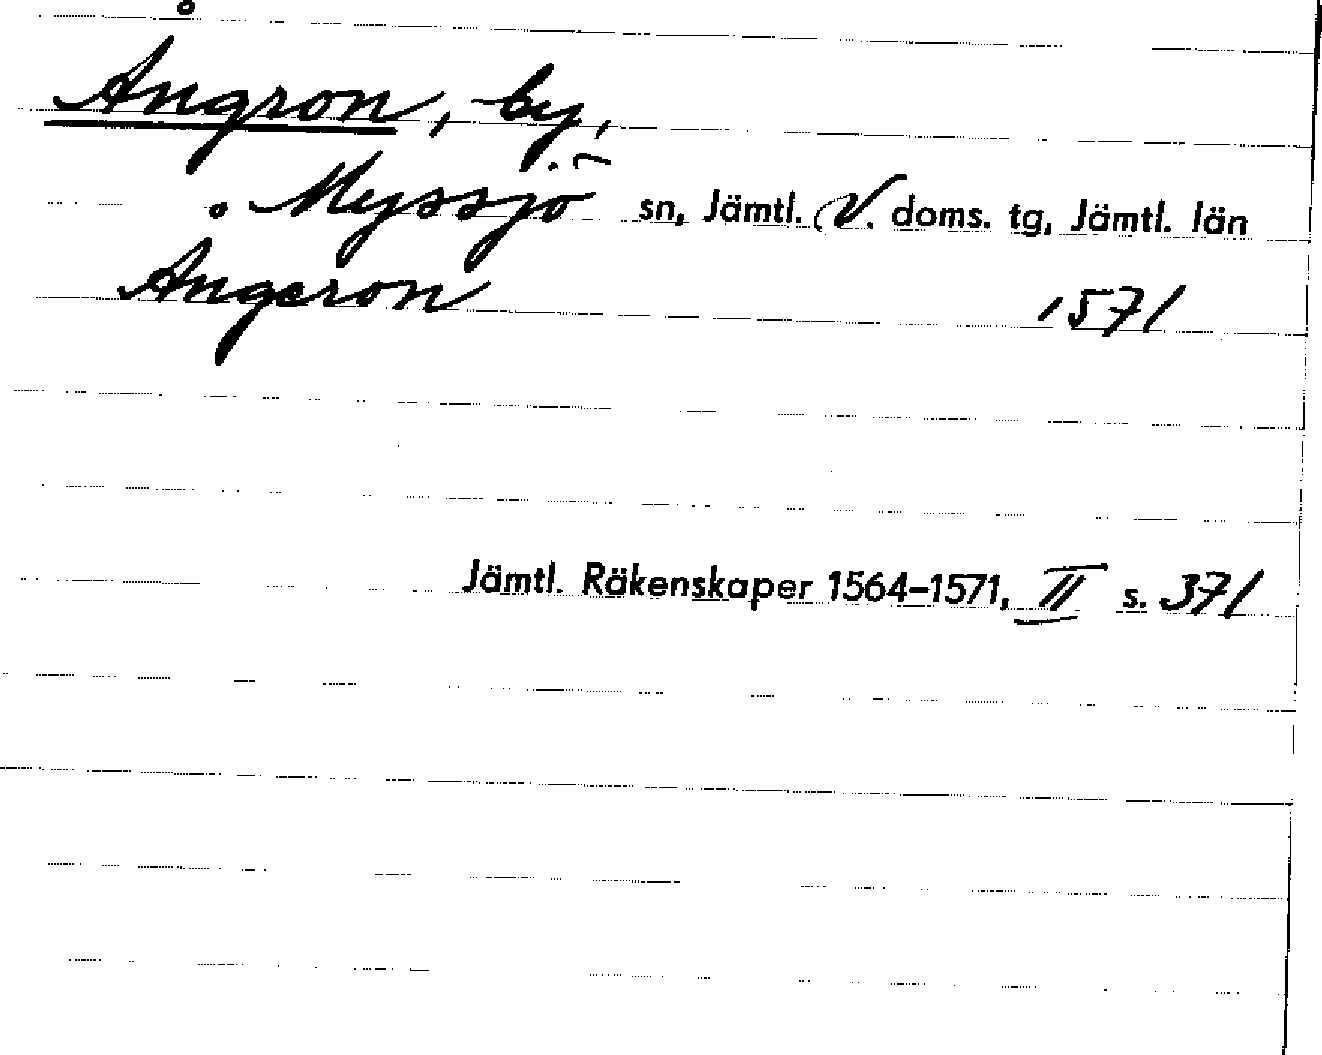 Ångron, by,
Myssjö sn, Jämtl. V. doms. tg, Jämtl. län
Ångeron 1571
Jämtl. Räkenskaper 1564–1571, II s. 371